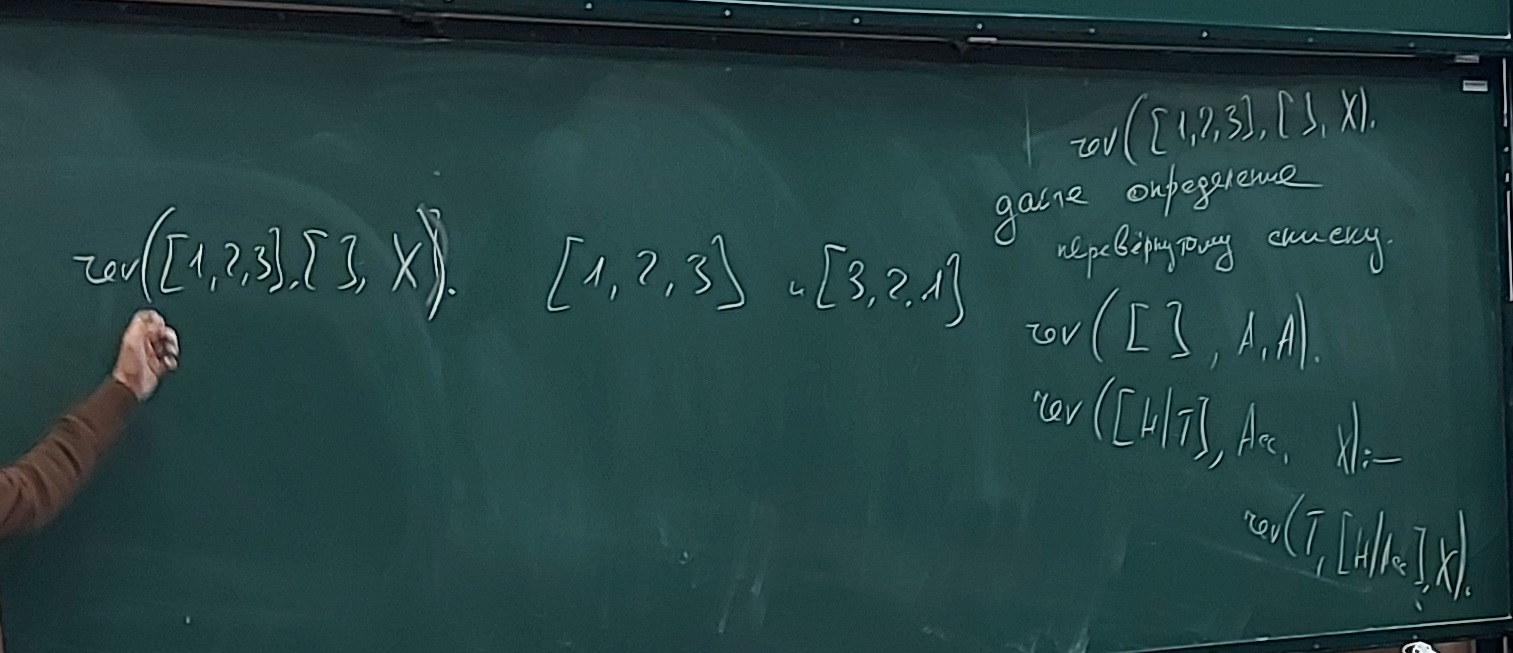 rev([1,2,3],[], X). [1,2,3] и [3,2,1]
rev([1,2,3],[], X).
дайте определение
перевёрнутому списку.
rev([], A, A).
rev([H|T], Acc, X):-
rev(T, [H|Acc], X).